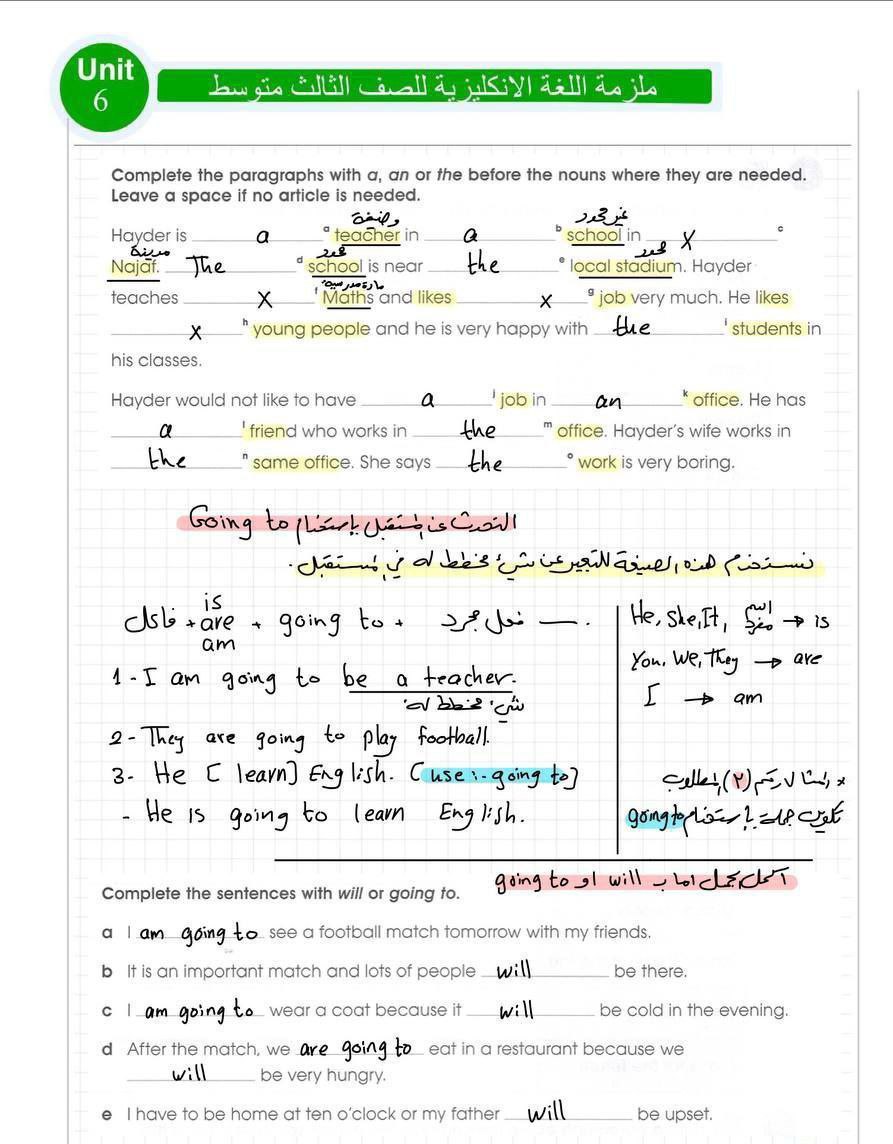 Unit
6
ملزمة اللغة الانكليزية للصف الثالث متوسط
Complete the paragraphs with a, an or the before the nouns where they are needed.
Leave a space if no article is needed.
وظيفة غير محدد
Hayder is a a teacher in a b school in X c
مدينة محدد محدد
Najaf. The d school is near the e local stadium. Hayder
مادة مدرسية
teaches X f Maths and likes x g job very much. He likes
x h young people and he is very happy with the i students in
his classes.
Hayder would not like to have a j job in an k office. He has
a l friend who works in the m office. Hayder's wife works in
the n same office. She says the o work is very boring.
التحدث عن المستقبل بإستخدام Going to
نستخدم هذه الصيغة للتعبير عن شيء مخطط له في المستقبل.
is
فاعل + are + going to + فعل مجرد ــــ .
am
He, She, It, اسم مفرد → is
You, We, They → are
I → am
1- I am going to be a teacher.
شيء مخطط له
2- They are going to play football.
3- He [ learn] English. [use :- going to]
- He is going to learn English.
* المثال رقم (٢) المطلوب
تكوين جملة بإستخدام going to
أكمل الجمل اما ب will او going to
Complete the sentences with will or going to.
a I am going to see a football match tomorrow with my friends.
b It is an important match and lots of people will be there.
c I am going to wear a coat because it will be cold in the evening.
d After the match, we are going to eat in a restaurant because we
will be very hungry.
e I have to be home at ten o'clock or my father will be upset.